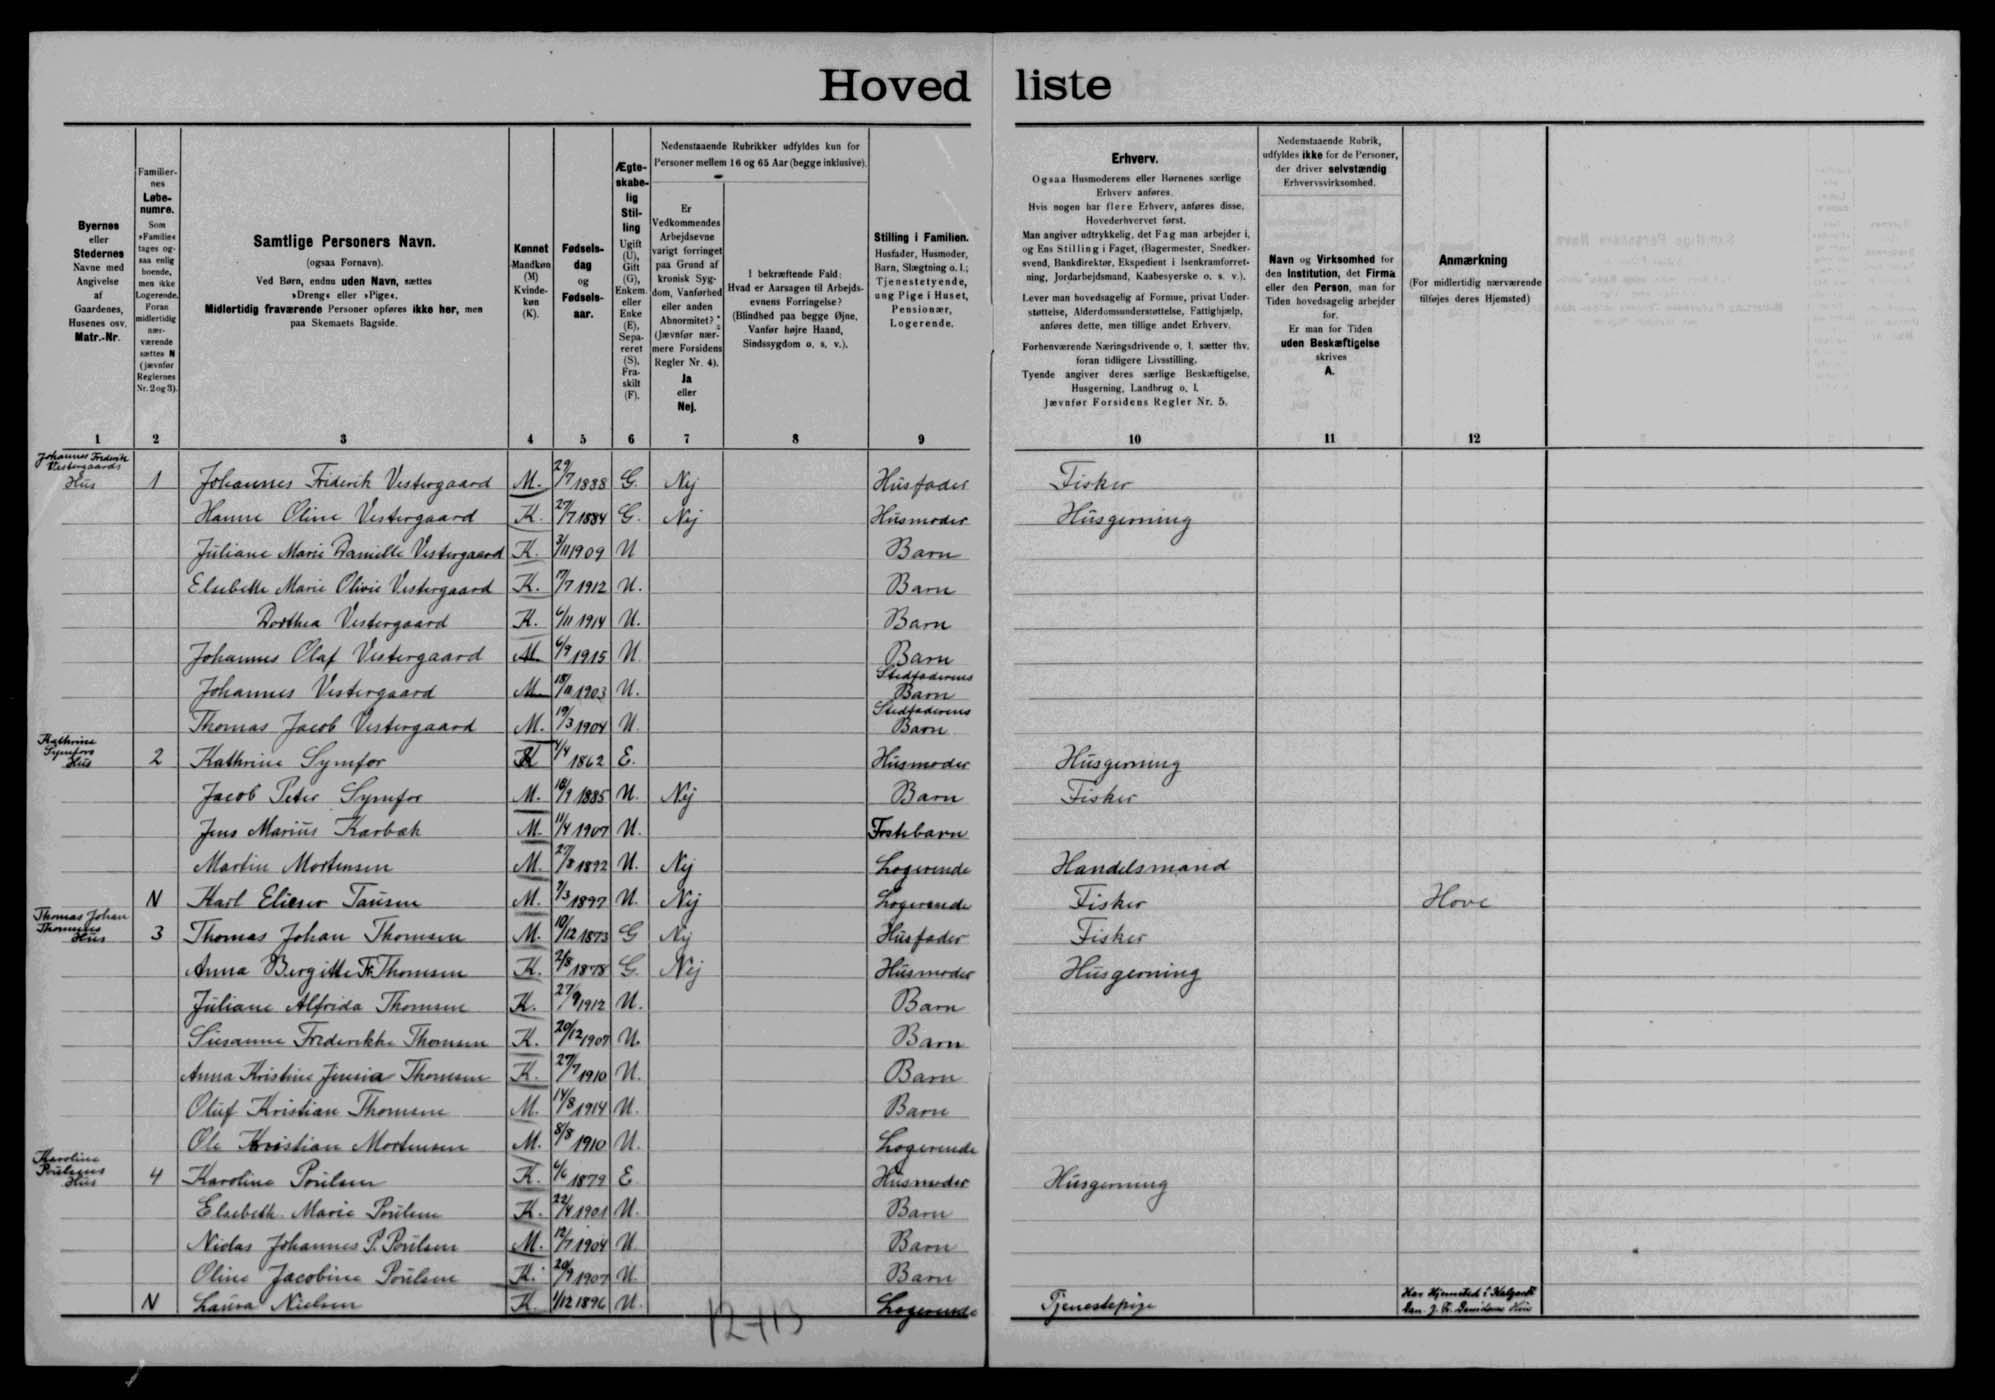 Hoved liste
Byernes
eller
Stedernes
Navne med
Angivelse
af
Gaardenes,
Husenes osv.
Matr.-Nr.
Familier-
nes
Løbe-
numre.
Som
»Familie«
tages og-
saa enlig
boende,
men ikke
Logerende.
Foran
midlertidig
nær-
værende
sættes N
(jævnfør
Reglernes
Nr. 2 og 3).
Samtlige Personers Navn.
(ogsaa Fornavn).
Ved Børn, endnu uden Navn, sættes
»Dreng« eller »Pige«.
Midlertidig fraværende Personer opføres ikke her, men
paa Skemaets Bagside.
Kønnet
Mandkøn
(M)
Kvinde-
køn
(K).
Fødsels-
dag
og
Fødsels-
aar.
Ægte-
skabe-
lig
Stil-
ling
Ugift
(U),
Gift
(G),
Enkem.
eller
Enke
(E),
Sepa-
reret
(S),
Fra-
skilt
(F).
Nedenstaaende Rubrikker udfyldes kun for
Personer mellem 16 og 65 Aar (begge inklusive).
Er
Vedkommendes
Arbejdsevne
varigt forringet
paa Grund af
kronisk Syg-
dom, Vanførhed
eller anden
Abnormitet?
(Jævnfør nær-
mere Forsidens
Regler Nr. 4).
Ja
eller
Nej.
I bekræftende Fald:
Hvad er Aarsagen til Arbejds-
evnens Forringelse?
(Blindhed paa begge Øjne,
Vanfør højre Haand,
Sindssygdom o. s. v.).
Stilling i Familien.
Husfader, Husmoder,
Barn, Slægtning o. l.;
Tjenestetyende,
ung Pige i Huset,
Pensionær,
Logerende.
Erhverv.
Ogsaa Husmoderens eller Børnenes særlige
Erhverv anføres.
Hvis nogen har flere Erhverv, anføres disse,
Hovederhvervet først.
Man angiver udtrykkelig, det Fag man arbejder i,
og Ens Stilling i Faget, (Bagermester, Snedker-
svend, Bankdirektør, Ekspedient i Isenkramforret-
ning, Jordarbejdsmand, Kaabesyerske o. s. v.).
Lever man hovedsagelig af Formue, privat Under-
støttelse, Alderdomsunderstøttelse, Fattighjælp,
anføres dette, men tillige andet Erhverv.
Forhenværende Næringsdrivende o. l. sætter thv.
foran tidligere Livsstilling.
Tyende angiver deres særlige Beskæftigelse,
Husgerning, Landbrug o. l.
Jævnfør Forsidens Regler Nr. 5.
Nedenstaaende Rubrik,
udfyldes ikke for de Personer,
der driver selvstændig
Erhvervsvirksomhed.
Navn og Virksomhed for
den Institution, det Firma
eller den Person, man for
Tiden hovedsagelig arbejder
for.
Er man for Tiden
uden Beskæftigelse
skrives
A.
Anmærkning
(For midlertidig nærværende
tilføjes deres Hjemsted)
1 2 3 4 5 6 7 8 9 10 11 12
Johannes Frederik
Vestergaards
Hus 1 Johannes Friderik Vestergaard M. 29/7 1888 G. Nej Husfader Fisker
Hanne Oline Vestergaard K. 27/7 1884 G. Nej Husmoder Husgerning
Juliane Marie Danielle Vestergaard K. 3/11 1909 U Barn
Elsebeth Marie Olivie Vestergaard K. 7/7 1912 U. Barn
Dorthea Vestergaard K. 6/11 1914 U. Barn
Johannes Olaf Vestergaard M 6/9 1915 U. Barn
Johannes Vestergaard M 18/11 1903 U. Stedfaderens Barn
Thomas Jacob Vestergaard M. 19/3 1904 U. Stedfaderens Barn
Kathrine
Symfors
Hus 2 Kathrine Symfor K 4/4 1862 E. Husmoder Husgerning
Jacob Peter Symfor M. 18/9 1885 U. Nej Barn Fisker
Jens Marius Karbæk M. 11/4 1907 U. Fostebarn
Martin Mortensen M. 27/8 1892 U. Nej Logerende Handelsmand
N Karl Elieser Tausen M. 7/3 1897 U. Nej Logerende Fisker Hove
Thomas Johan
Thomsens
Hus 3 Thomas Johan Thomsen M. 10/12 1873 G Nej Husfader Fisker
Anna Bergitte Fr. Thomsen K. 2/8 1878 G. Nej Husmoder Husgerning
Juliane Alfrida Thomsen K. 27/9 1912 U. Barn
Susanne Frederikke Thomsen K. 20/12 1907 U. Barn
Anna Kristine Jensia Thomsen K. 27/7 1910 U. Barn
Oluf Kristian Thomsen M. 14/8 1914 U. Barn
Ole Kristian Mortensen M. 8/8 1910 U. Logerende
Karoline
Poulsens
Hus 4 Karoline Poulsen K. 4/6 1879 E Husmoder Husgerning
Elsebeth Marie Poulsen K. 22/4 1901 U. Barn
Niclas Johannes P. Poulsen M. 12/7 1904 U. Barn
Oline Jacobine Poulsen K. 20/9 1907 U. Barn
N Laura Nielsen K 1/12 1896 U. Logerende Tjenestepige Har Hjemsted i
12+13